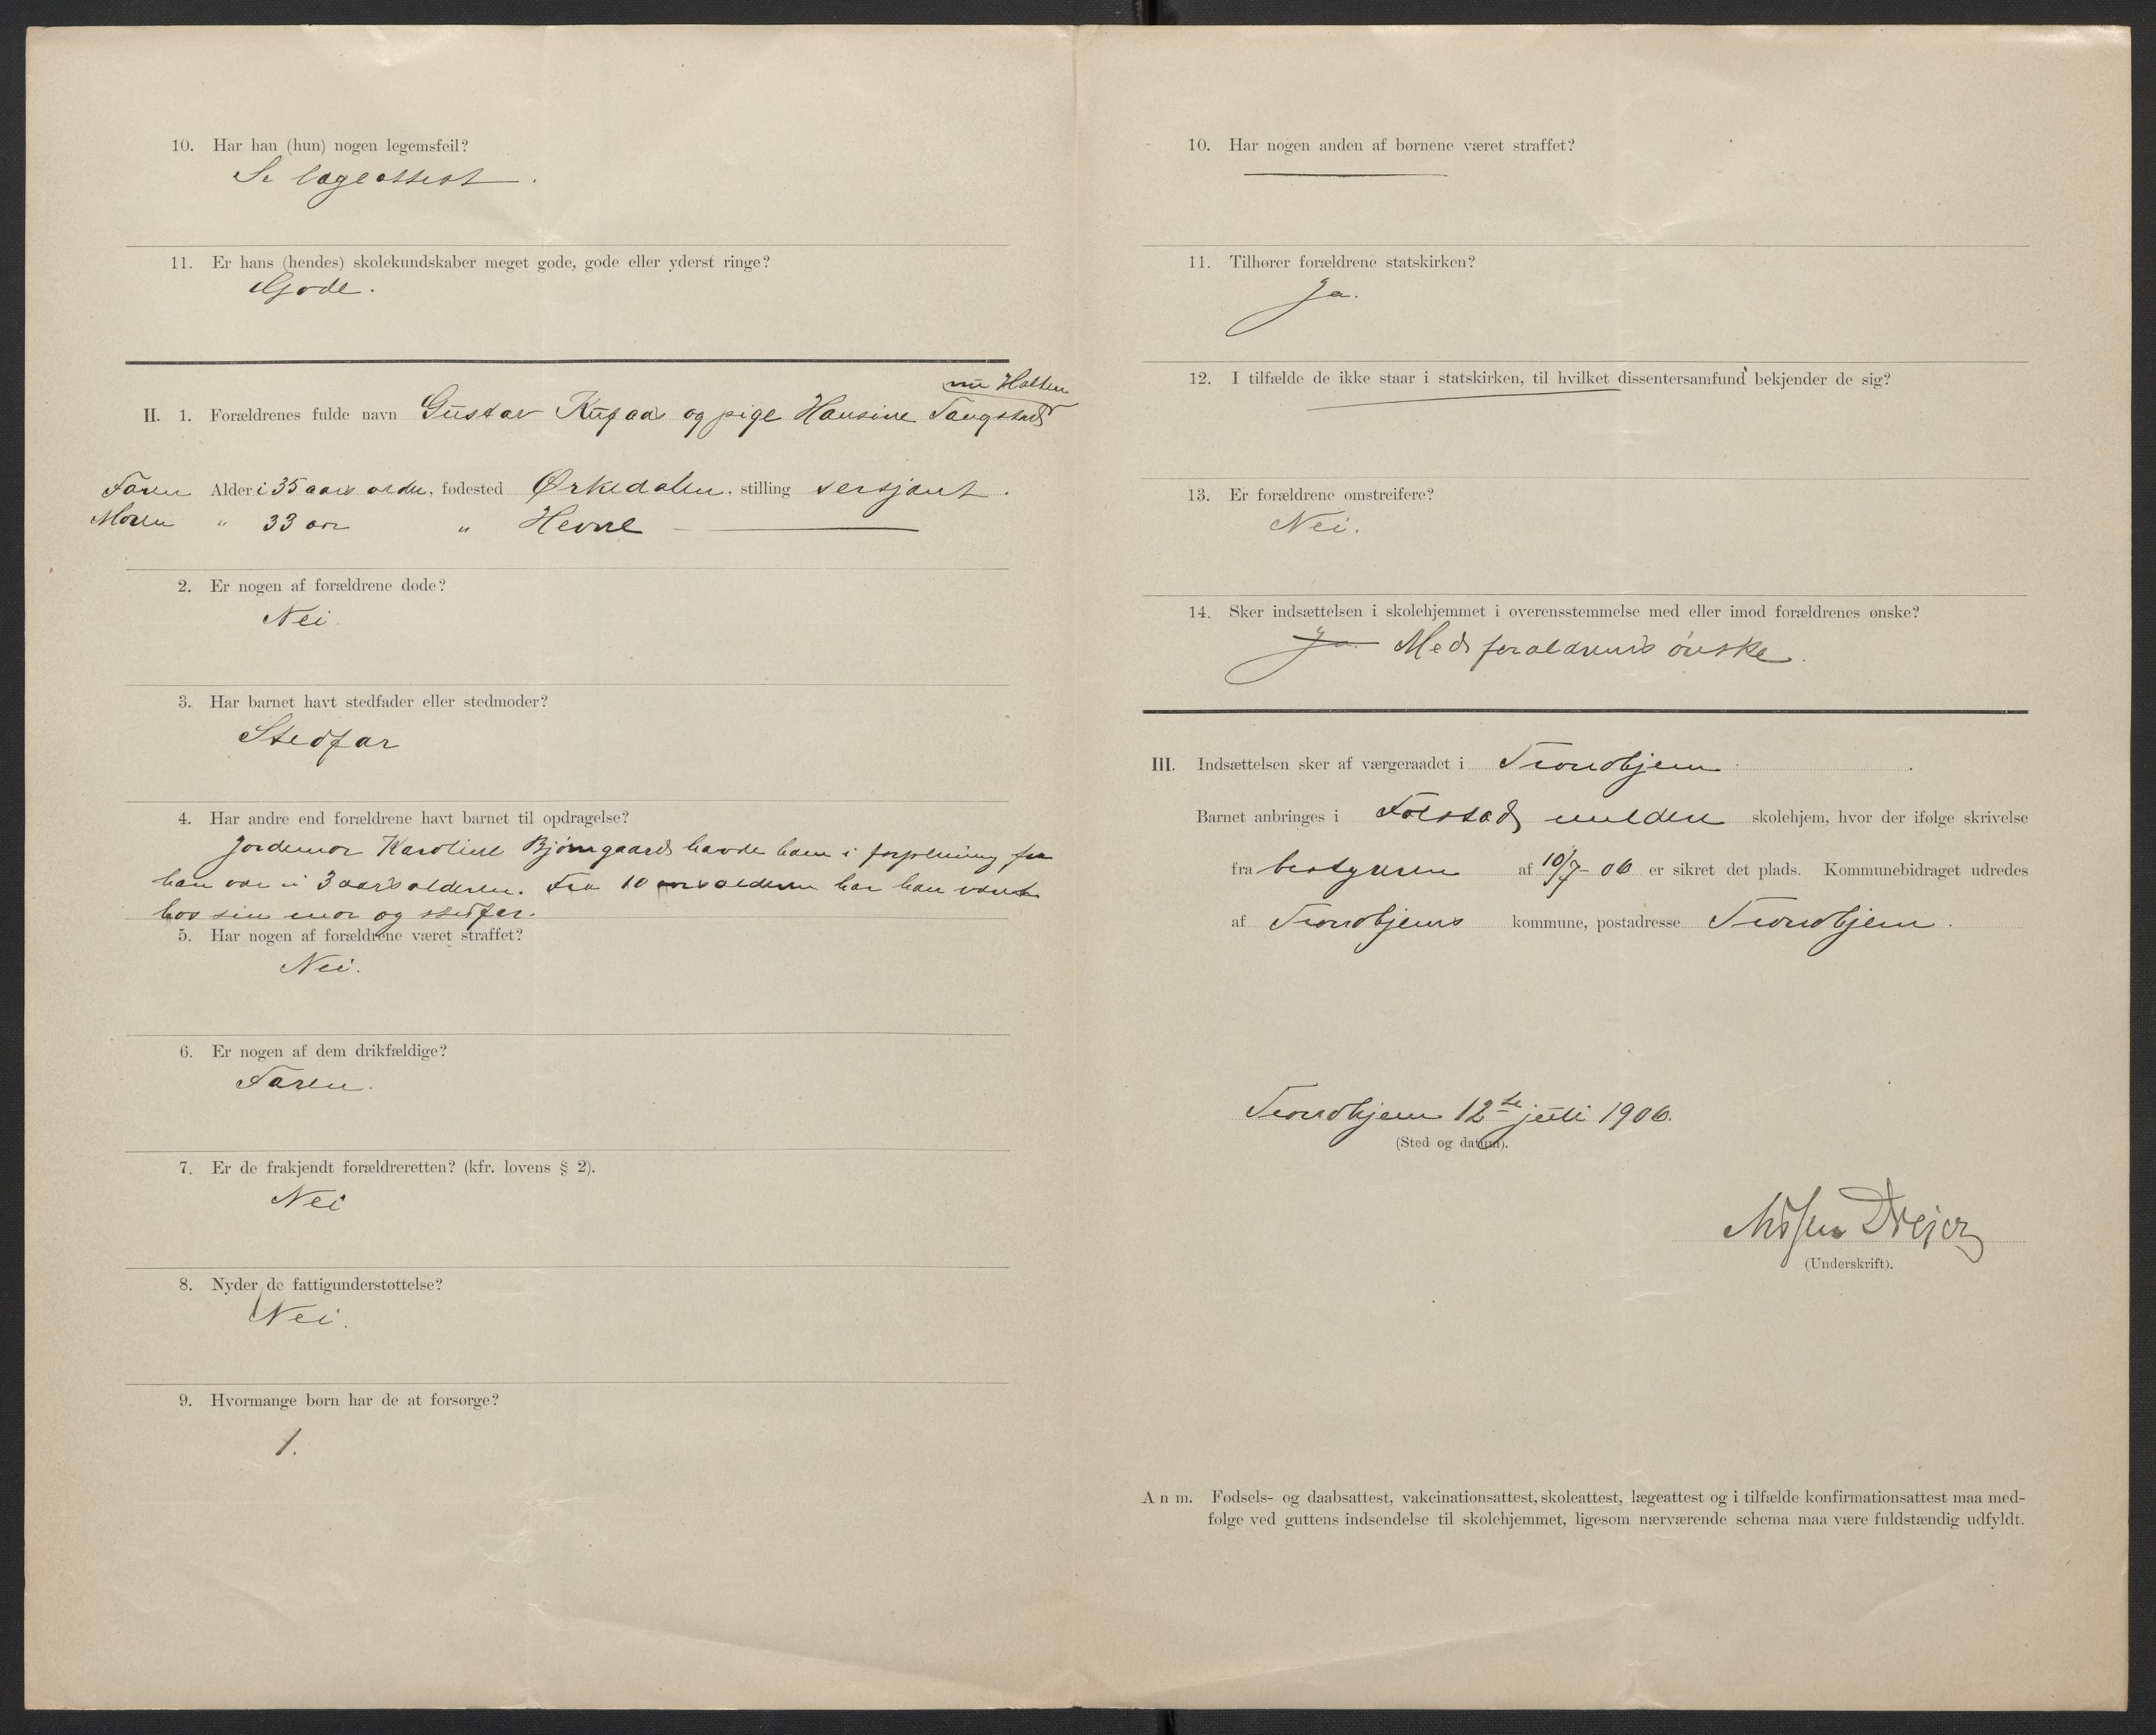 10. Har han (hun) nogen legemsfeil?
Se lægeattest.
11. Er hans (hendes) skolekundskaber meget gode, gode eller yderst ringe?
Gode.
nu Holten
II. 1. Forældrenes fulde navn Gustav og pige Hansine Tangstad
Faren Alder i 35 aars alder, fødested Ørkedalen, stilling sersjant.
Moren " 33 aar " Hevne —
2. Er nogen af forældrene døde?
Nei.
3. Har barnet havt stedfader eller stedmoder?
Stedfar
4. Har andre end forældrene havt barnet til opdragelse?
Jordemor Karoline Bjørngaard havde ham i forpleining fra
han var i 3 aars alderen. Fra 10 aars alderen har han været
hos sin mor og stedfar.
5. Har nogen af forældrene været straffet?
Nei.
6. Er nogen af dem drikfældige?
Faren.
7. Er de frakjendt forældreretten? (kfr. lovens § 2).
Nei
8. Nyder de fattigunderstøttelse?
Nei.
9. Hvormange børn har de at forsørge?
1.
10. Har nogen anden af børnene været straffet?
11. Tilhører forældrene statskirken?
Ja.
12. I tilfælde de ikke staar i statskirken, til hvilket dissentersamfund bekjender de sig?
13. Er forældrene omstreifere?
Nei.
14. Sker indsættelsen i skolehjemmet i overensstemmelse med eller imod forældrenes ønske?
Ja. Med forældrenes ønske.
III. Indsættelsen sker af værgeraadet i Trondhjem.
Barnet anbringes i Falstad mildere skolehjem, hvor der ifølge skrivelse
fra bestyreren af 10/7-06 er sikret det plads. Kommunebidraget udredes
af Trondhjems kommune, postadresse Trondhjem.
Trondhjem 12te juli 1906.
(Sted og datum).
Nissen Drejer
(Underskrift).
Anm. Fødsels- og daabsattest, vakcinationsattest, skoleattest, lægeattest og i tilfælde konfirmationsattest maa med-
følge ved guttens indsendelse til skolehjemmet, ligesom nærværende schema maa være fuldstændig udfyldt.